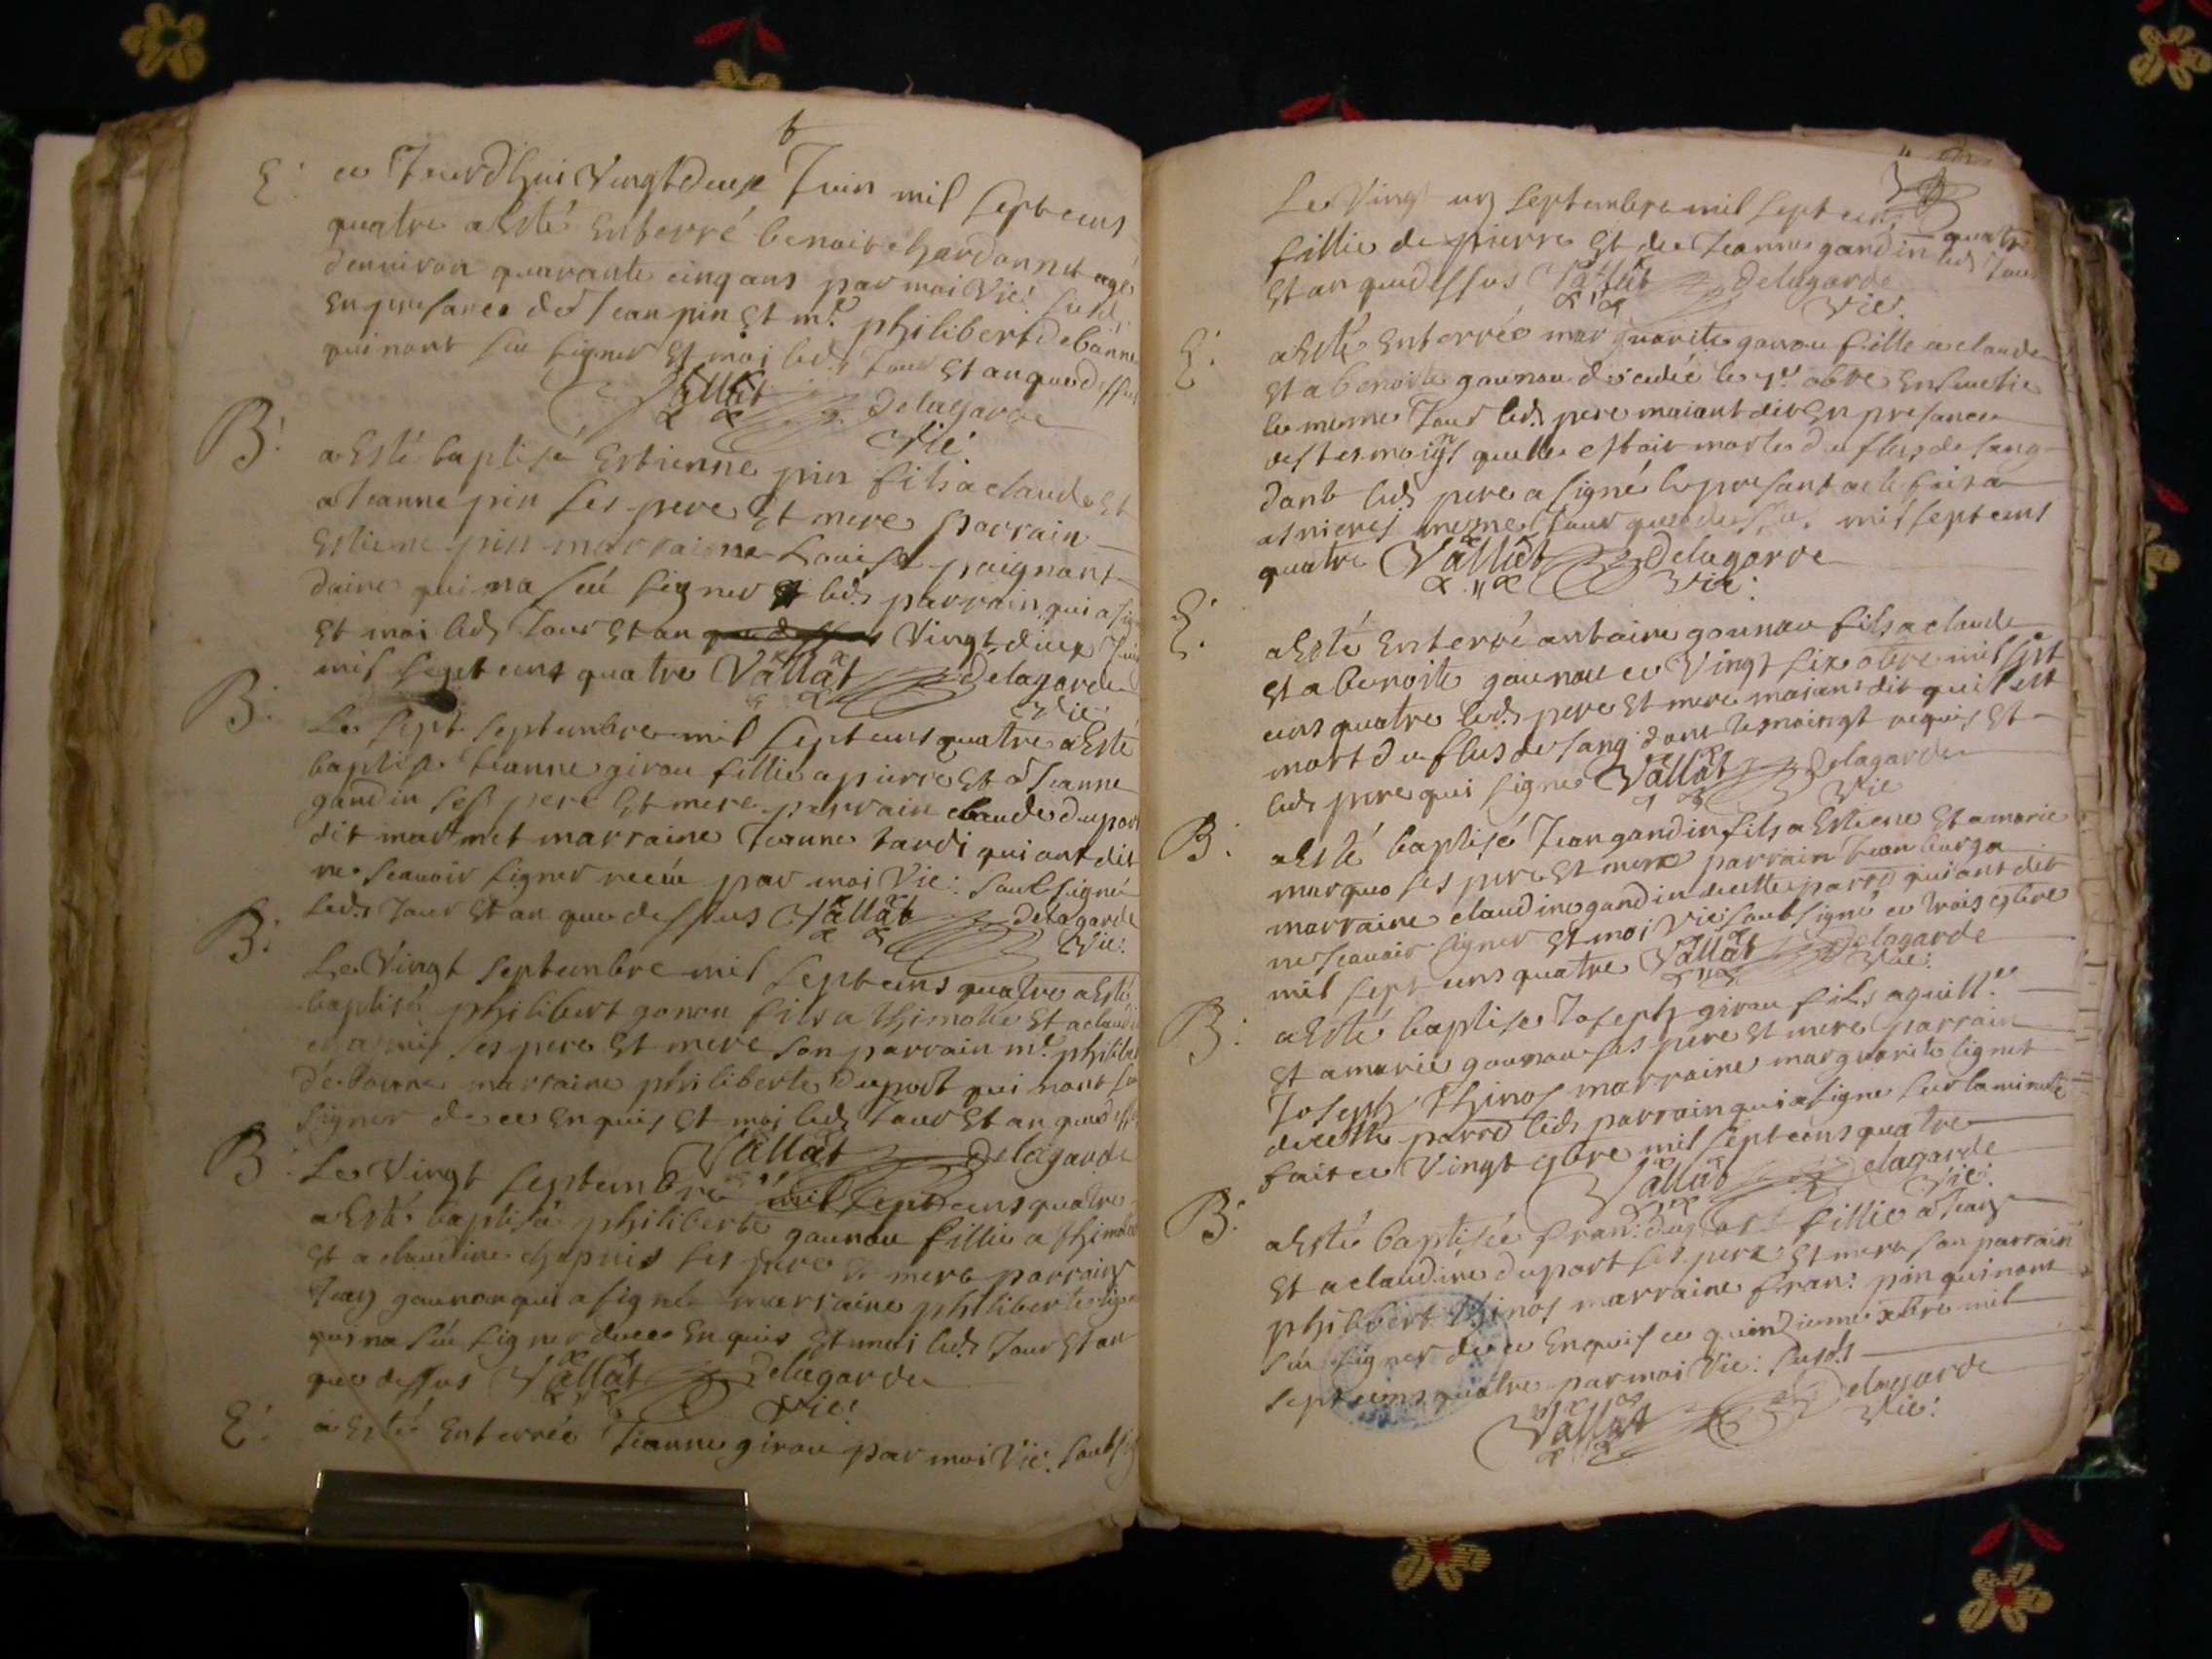 E: ce Jourdhui Vingtdeux Juin mil septcens
quatre a Esté Enterré benoit chardonnet agé
denuiron quarante cinq ans par moi Vic: susd.
En presance de Jean pin Et m.e philibert debanne
qui nont seu signer Et moi led. Jour Et an que dessus
Vallat Delagarde
Vic:
B: a Esté baptisé Estienne pin fils a claude Et
a Jeanne pin ses pere Et mere parrain
Estiene pin marraine Louise paignant
daine qui na seü signer Et led. parrain qui a
Et moi led. Jour Et an Vingt deux Juin
mil sept cens quatre Vallat Delagarde
Vic:
B: Le sept septembre mil septcens quatre a Esté
baptisé Jeanne girou fillie a pierre Et a Jeanne
gandin ses pere Et mere parrain claude duport
dit marmet marraine Jeanne tardi qui ont dit
ne scauoir signer par moi Vic: soubsigné
led. Jour Et an que dessus Vallat delagarde
Vic:
B: Le Vingt septembre mil septcens quatre a Esté
baptisé philibert gonou fils a thimotée Et a
ses pere Et mere son parrain m.e
marraine philiberte duport qui nont seu
signer de ce Enquis Et moi led. Jour Et an que dessus
Vallat Delagarde
B: Le Vingt septembre mil septcens quatre
a Esté baptisée philiberte gounou fillie a
Et a claudine chapuis ses pere Et mere parrain
Jean gounou qui a signé marraine philiberte
qui na seü signer de ce Enquis Et moi led. Jour Et an
que dessus Vallat Delagarde
Vic:
E: a Esté Enterrée Jeanne girou par moi Vic.
Le Vingt un septembre mil sept cens quatre
fillie de pierre Et de Jeanne gandin led. Jour
Et an que dessus Vallat Delagarde
Vic:
E: a Esté Enterrée marguarite gonou fille a claude
Et a benoite gounou décedée le obre Enseuelie
le meme Jour led. pere maiant dit En presance
des tesmoings quelle estoit morte du flus de sang
dont led. pere a signé le presant acte fait a
asnieres meme Jour que dessus mil septcens
quatre Vallat Delagarde
Vic:
E: a Esté Enterré antoine gounou fils a claude
Et a benoite gounou ce Vingt six obre mil sept
cens quatre led. pere Et mere maians dit quil est
mort du flus de sang dont tesmoingt requis Et
led. pere qui signe Vallat Delagarde
Vic
B: a Esté baptisé Jean gandin fils a Estiene Et a marie
marquo ses pere Et mere parrain Jean
marraine claudine gandin de cette parr. qui ont dit
ne scauoir signer Et moi Vic: soubsigné ce trois
mil sept cens quatre Vallat Delagarde
Vic:
B: a Esté baptisé Joseph girou fils a
Et a marie gounou ses pere Et mere parrain
Joseph thinos marraine marguarite lignet
de cette parr. led. parrain qui a signe sur la minute
fait ce Vingt mil septcens quatre
Vallat Delagarde
Vic:
B: a Esté baptisée fran: duport fillie a Jean
Et a claudine duport ses pere Et mere son parrain
philibert thinos marraine fran: pin qui nont
seü signer de ce Enquis ce quinzieme xbre mil
septcens quatre par moi Vic: susd.
Vallat Delagarde
Vic: